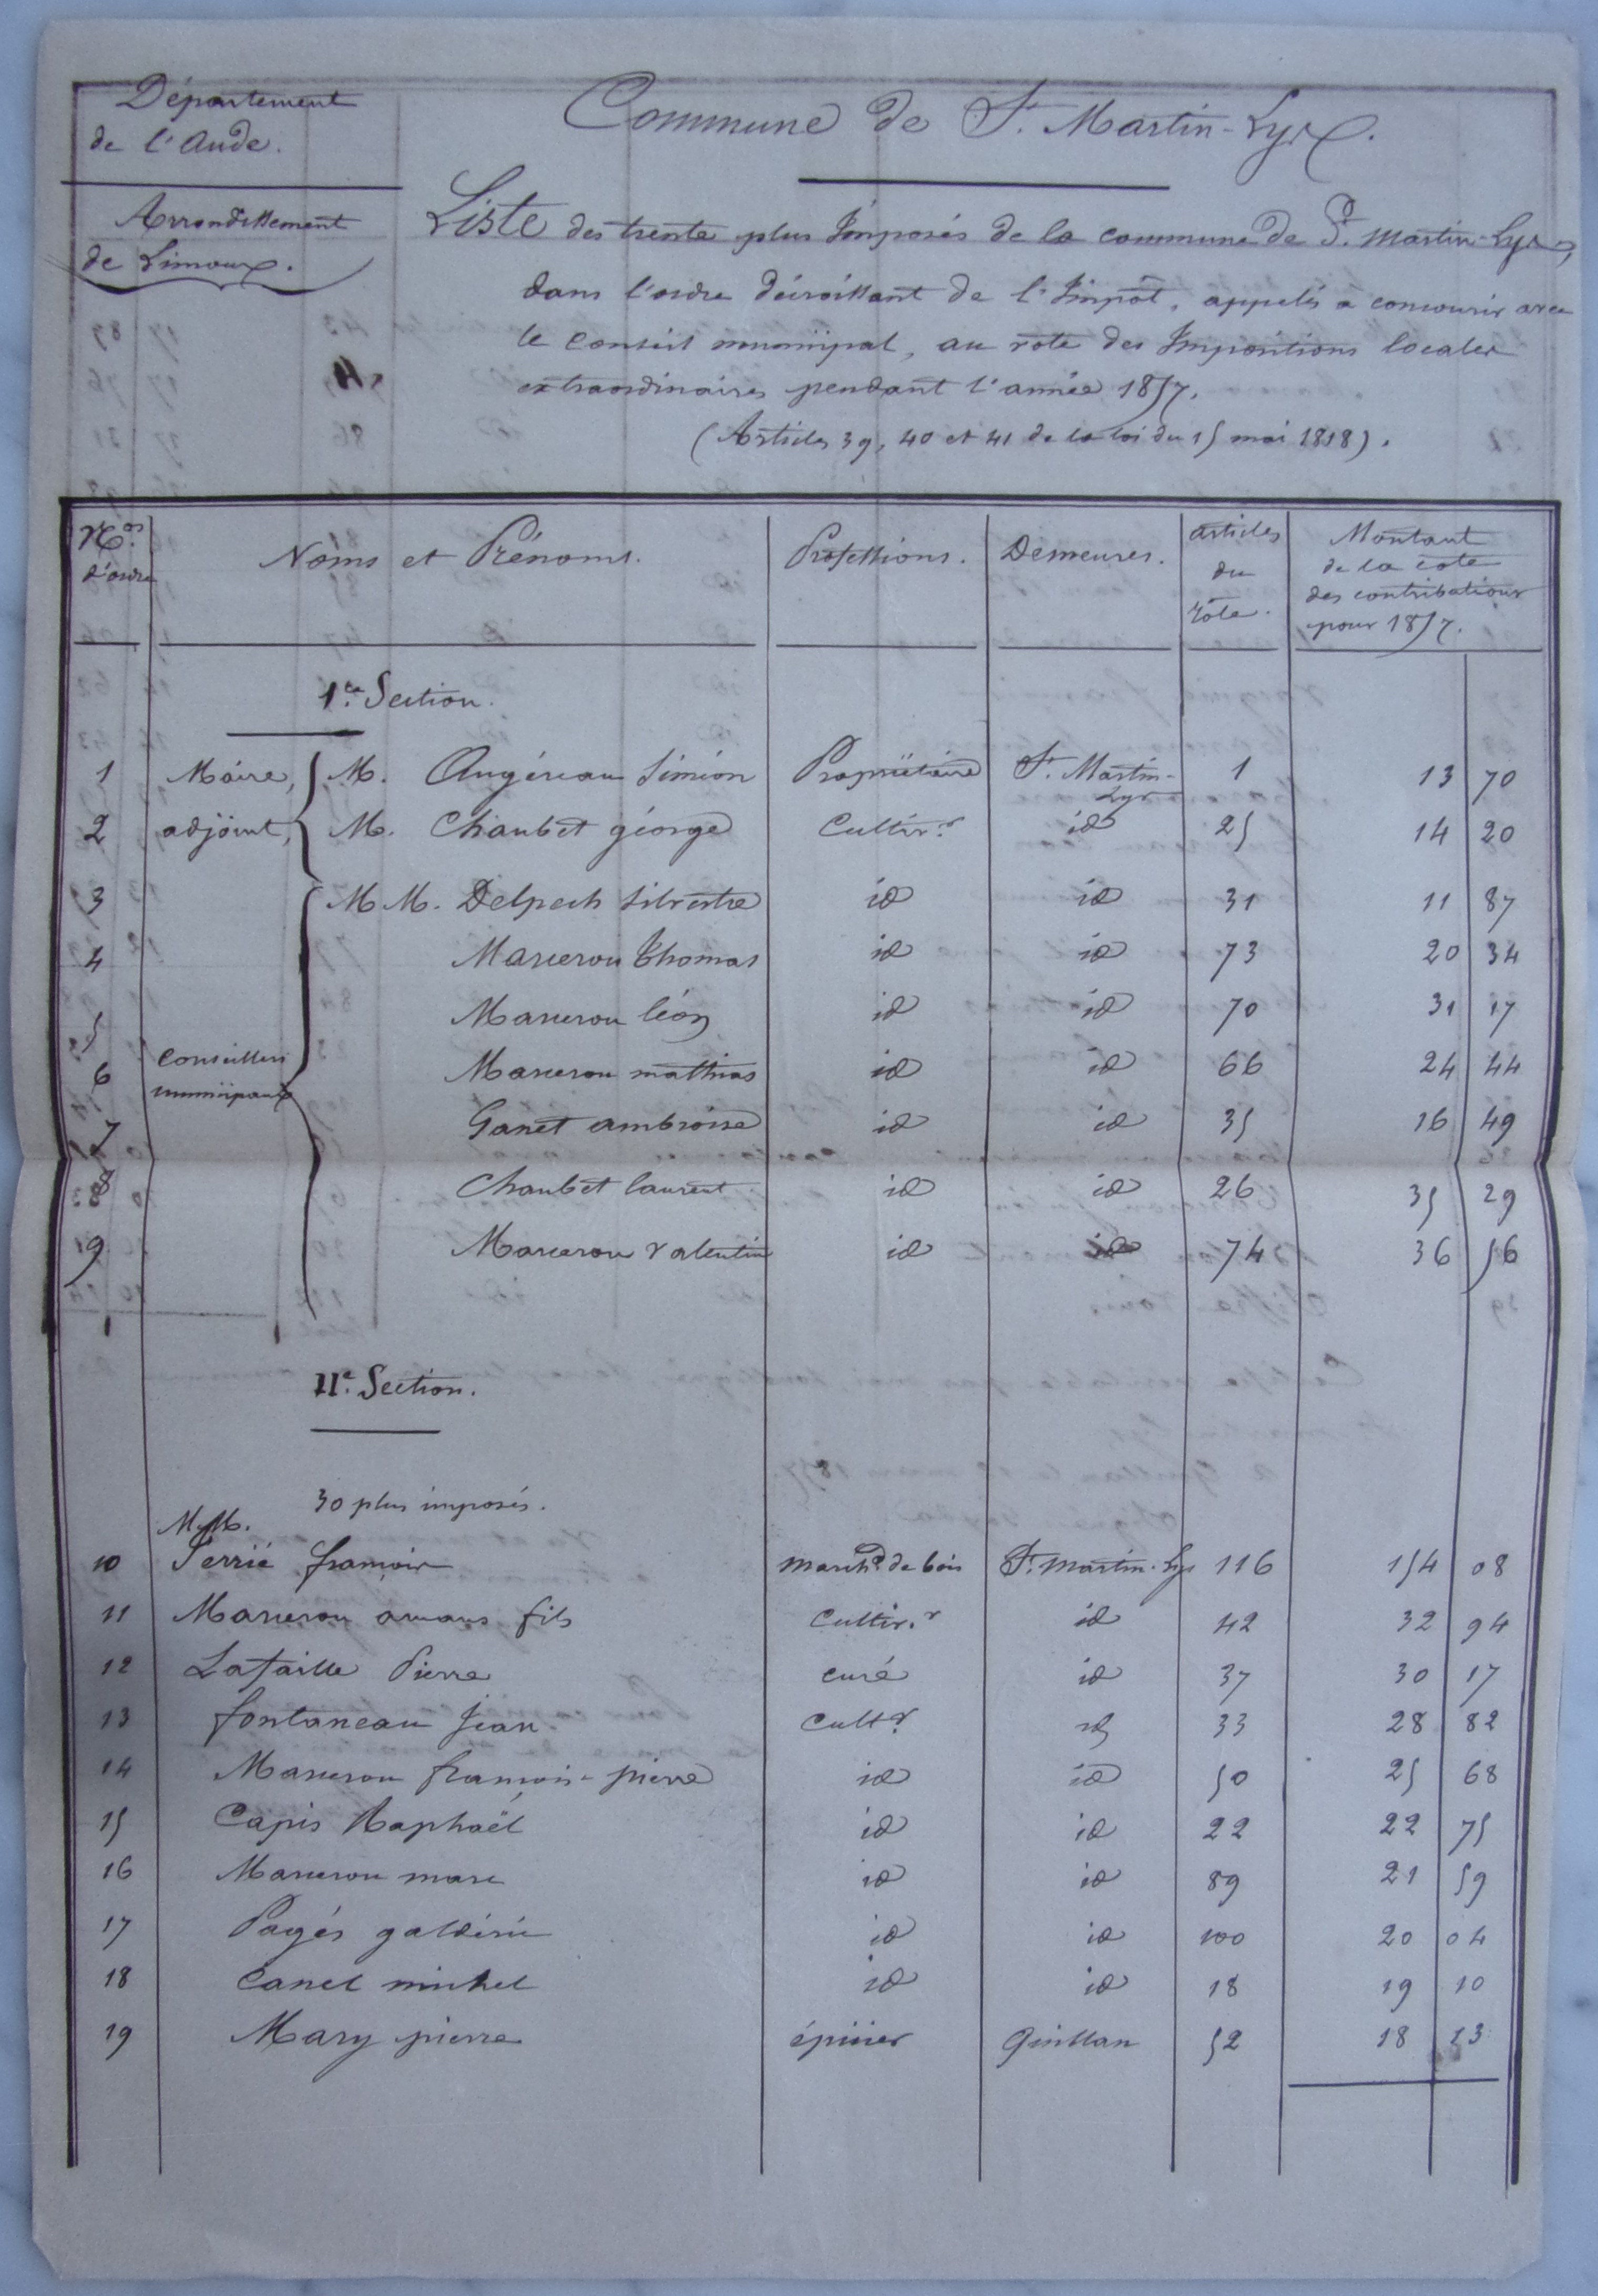 Département
de l'Aude.
Arrondissement
de Limoux.
Commune de St. Martin-Lys.
Liste des trente plus Imposés de la commune de St. Martin-Lys,
dans l'ordre décroissant de l'Impôt, appelés a concourir avec
le Conseil municipal, au vote des Impositions locales
extraordinaires pendant l'année 1857.
(Articles 39, 40 et 41 de la loi du 15 mai 1818).
Nos. d'ordre Noms et Prénoms. Professions. Demeures. articles du rôle. Montant de la cote des contributions pour 1857.
1re. Section.
1 Maire, M. Augéreau Siméon Propriétaire St. Martin-Lys 1 13 70
2 adjoint, M. Chaubet géorge Cultivr. id 25 14 20
3 M M. Delpech Silvestre id id 31 11 87
4 Marcerou Thomas id id 73 20 34
5 Marcerou léon id id 70 31 17
6 Conseillers municipaux Marcerou mathias id id 66 24 44
7 Ganet ambroise id id 35 16 49
8 Chaubet laurent id id 26 35 29
9 Marcerou valentin id id 74 36 56
IIe. Section.
30 plus imposés.
M.M.
10 Serrié françois marchd. de bois St. Martin-Lys 116 154 08
11 Marcerou amans fils Cultiv.r id 42 32 94
12 Lafaille Pierre curé id 37 30 17
13 fontaneau Jean Cultr. id 33 28 82
14 Marcerou françois-pierre id id 50 25 68
15 Capis Raphaël id id 22 22 75
16 Marcerou marc id id 89 21 59
17 Pagés galdéric id id 100 20 04
18 Canel michel id id 18 19 10
19 Mary pierre épicier Quillan 52 18 13